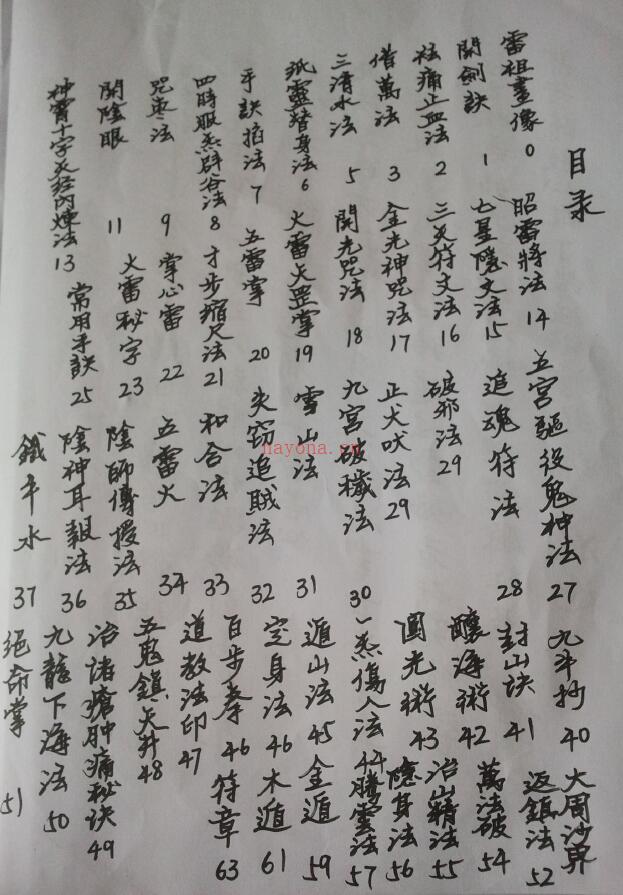 目录
雷祖畫像 0
開劍訣 1
祛痛止血法 2
借萬法 3
三清水法 5
紙靈替身法 6
手訣掐法 7
四時服炁辟谷法 8
咒枣法 9
開陰眼 11
神霄十字天经内煉法 13
昭雷將法 14
七星隱文法 15
三天符文法 16
金光神咒法 17
開光咒法 18
火雷天罡掌 19
五雷掌 20
才步縮尺法 21
掌心雷 22
火雷秘字 23
常用手訣 25
五宫驅役鬼神法 27
追魂符法 28
破邪法 29
止犬吠法 29
九宮破穢法 30
雪山法 31
失窃追賊法 32
和合法 33
五雷火 34
陰師傳授法 35
陰神耳報法 36
鐵牛水 37
九斗抄 40
封山诀 41
釀海術 42
圓光術 43
一炁傷人法 44
遁山法 45
定身法 46
百步拳 46
道教法印 47
五鬼鎮天井 48
治诸瘡肿痛秘诀 49
九龍下海法 50
绝命掌 51
大周沙界
返鎮法 52
萬法破 54
治山精法 55
隱身法 56
騰雲法 57
金遁 59
木遁 61
符章 63
nayona.cn